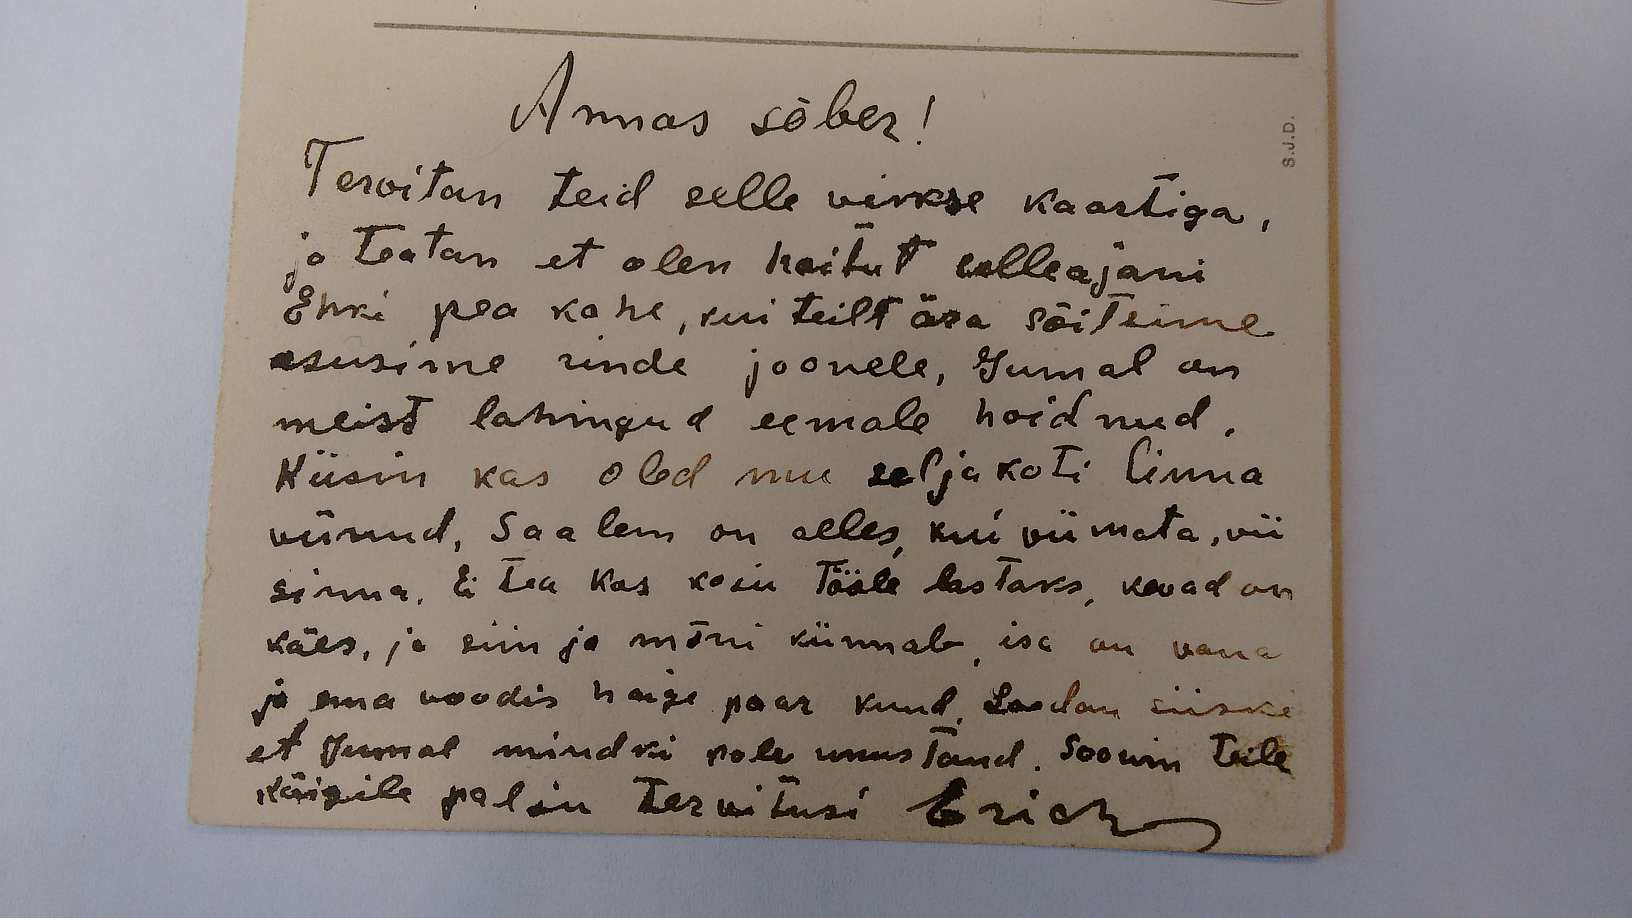 Armas sõber!
S.J.D.
Tervitan teid selle väikse kaartiga,
ja teatan et olen hoitut selleajani
Ehki pea kohe, kui teilt ära sõitsime
asusime rinde joonele, Jumal on
meist lahingud eemale hoidnud.
Küsin kas oled mu seljakoti linna
viinud, Saalem on alles, kui viimata, vii
sinna. Ei tea kas koju tööle lastaks, kevad on
käes, ja siin ja mõni künnab, isa on vana
ja ema voodis haige paar kuud. Loodan siiski
et Jumal mindki pole unustand. Soovin teile
kõigile palju tervitusi Erich